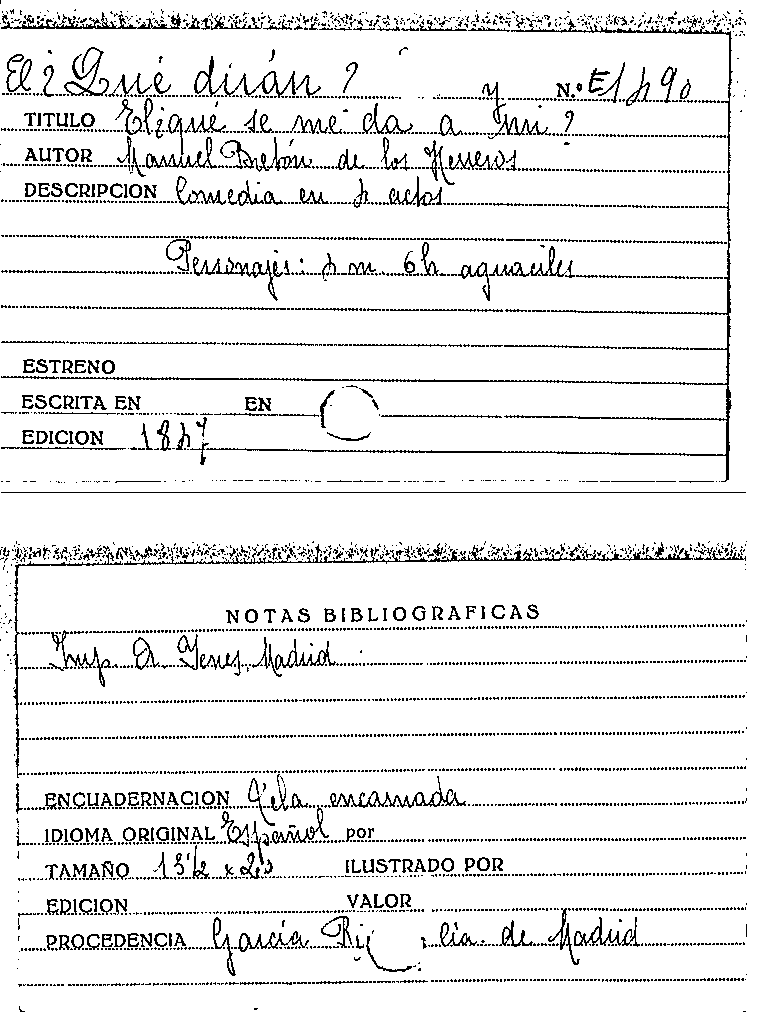 El ¿Qué dirán? y N.º E1490
TITULO El ¿qué se me da a mi?
AUTOR Manuel Bretón de los Herreros
DESCRIPCION Comedia en 4 actos
Personajes: 4 m 6 h aguaciles
ESTRENO
ESCRITA EN EN
EDICION 1847
NOTAS BIBLIOGRAFICAS
Imp. D. Yenes, Madrid
ENCUADERNACION Tela encarnada
IDIOMA ORIGINAL Español por
TAMAÑO ILUSTRADO POR
EDICION VALOR
PROCEDENCIA García cia. de Madrid